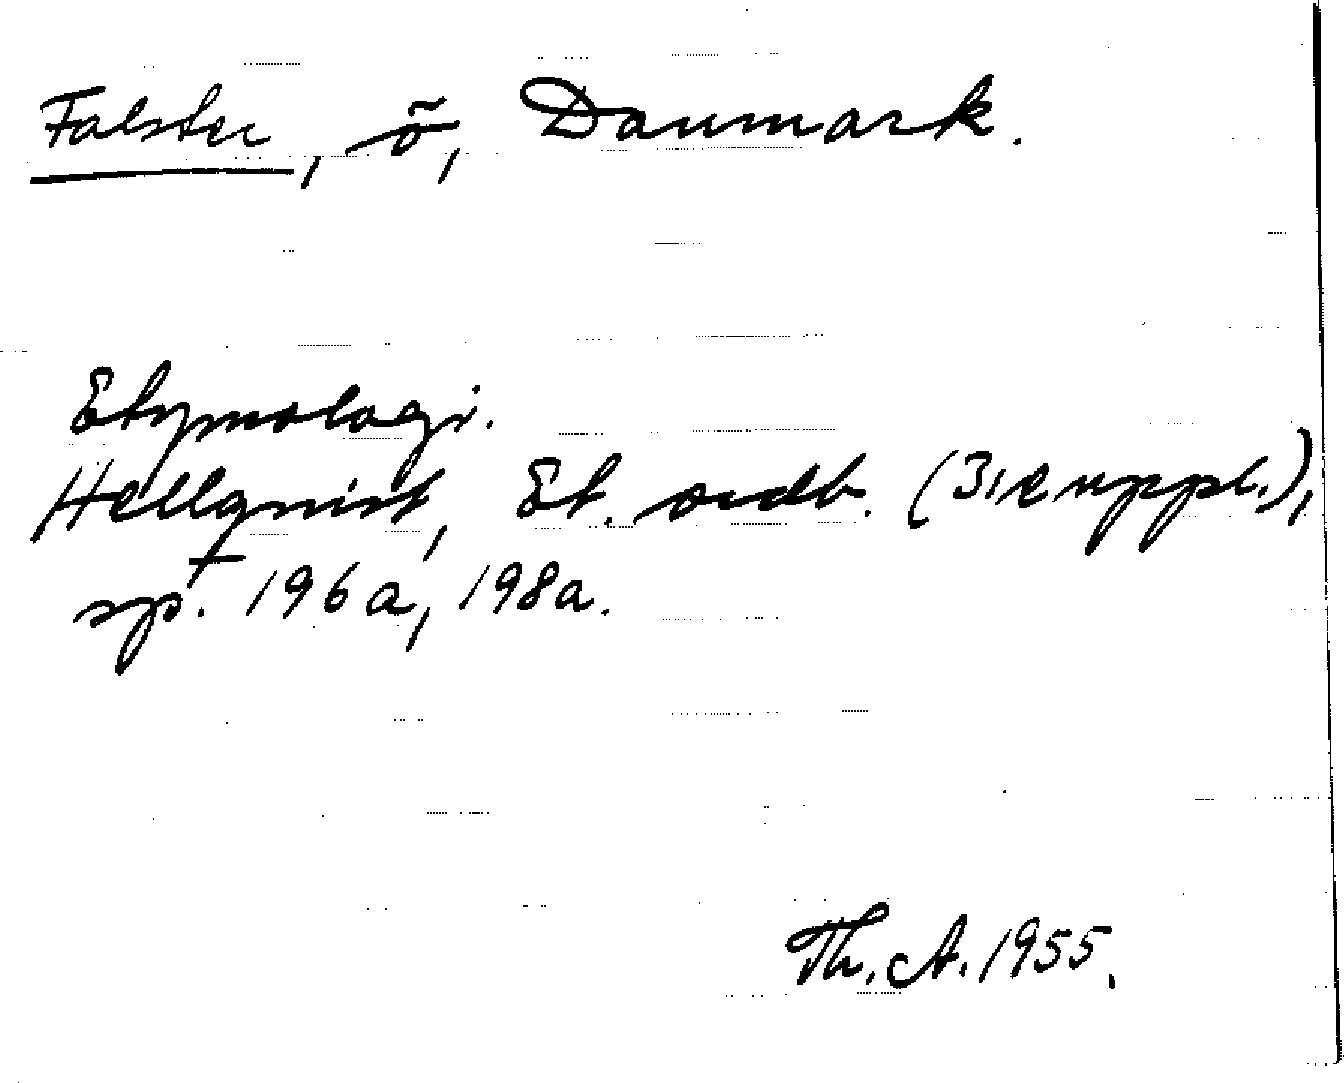 Falster, ö, Danmark.
Etymologi.
Hellqvist, Et. ordb. (3:e uppl.),
sp. 196a, 198a.
Th. A. 1955.